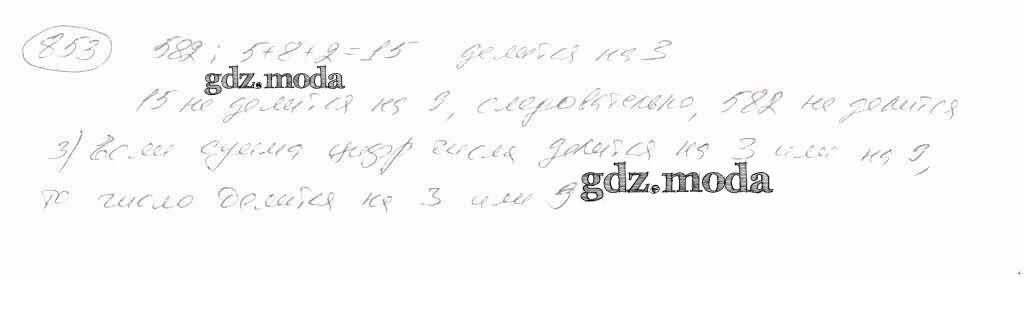 853 582; 5+8+2=15 делится на 3
gdz.moda
15 не делится на 9, следовательно, 582 не делится
3) Если сумма цифр числа делится на 3 или на 9,
gdz.moda
то число делится на 3 или 9